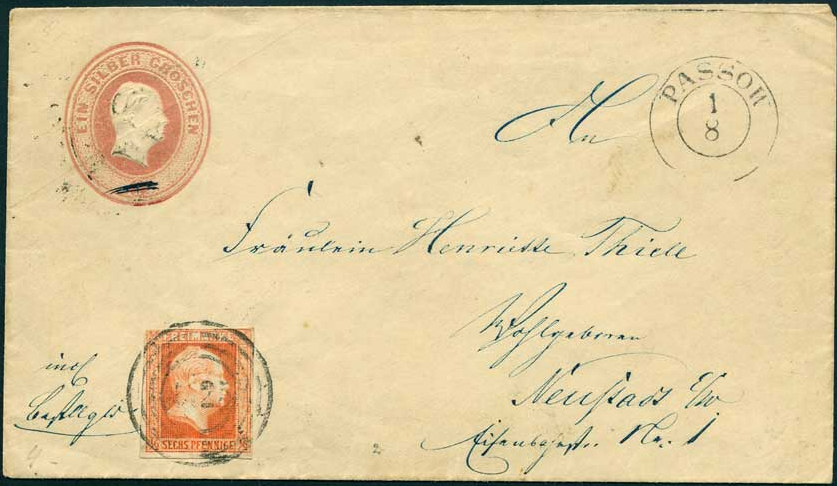 EIN SILBER GROSCHEN
PASSOW
1
8
An
Fräulein Henriette Thiele
Wohlgeboren
Neustadt
Eisenbahnstr. Nr. 1
FREIMARKE
6 SECHS PFENNIGE 6
incl
Bestellgld